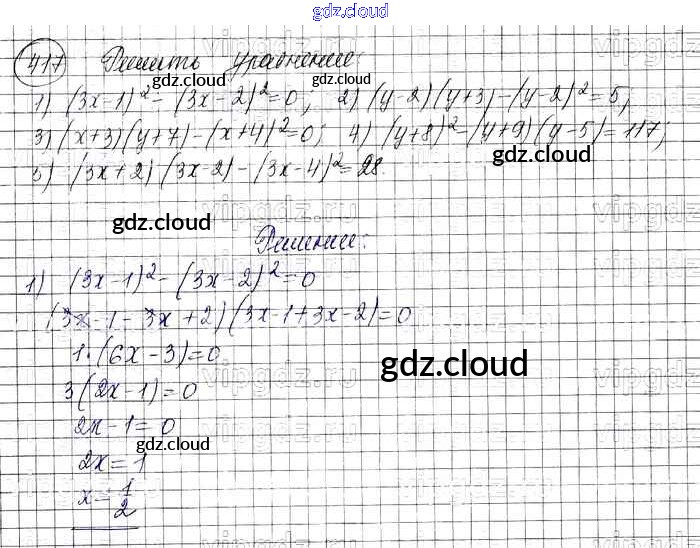 gdz.cloud
417 Решить уравнение:
1) (3x-1)²-(3x-2)²=0; 2) (y-2)(y+3)-(y-2)²=5;
3) (x+3)(y+7)-(x+4)²=0; 4) (y+8)²-(y+9)(y-5)=117;
5) (3x+2)(3x-2)-(3x-4)²=28.
Решение:
1) (3x-1)²-(3x-2)²=0
(3x-1-3x+2)(3x-1+3x-2)=0
1·(6x-3)=0
3(2x-1)=0
2x-1=0
2x=1
x=1/2